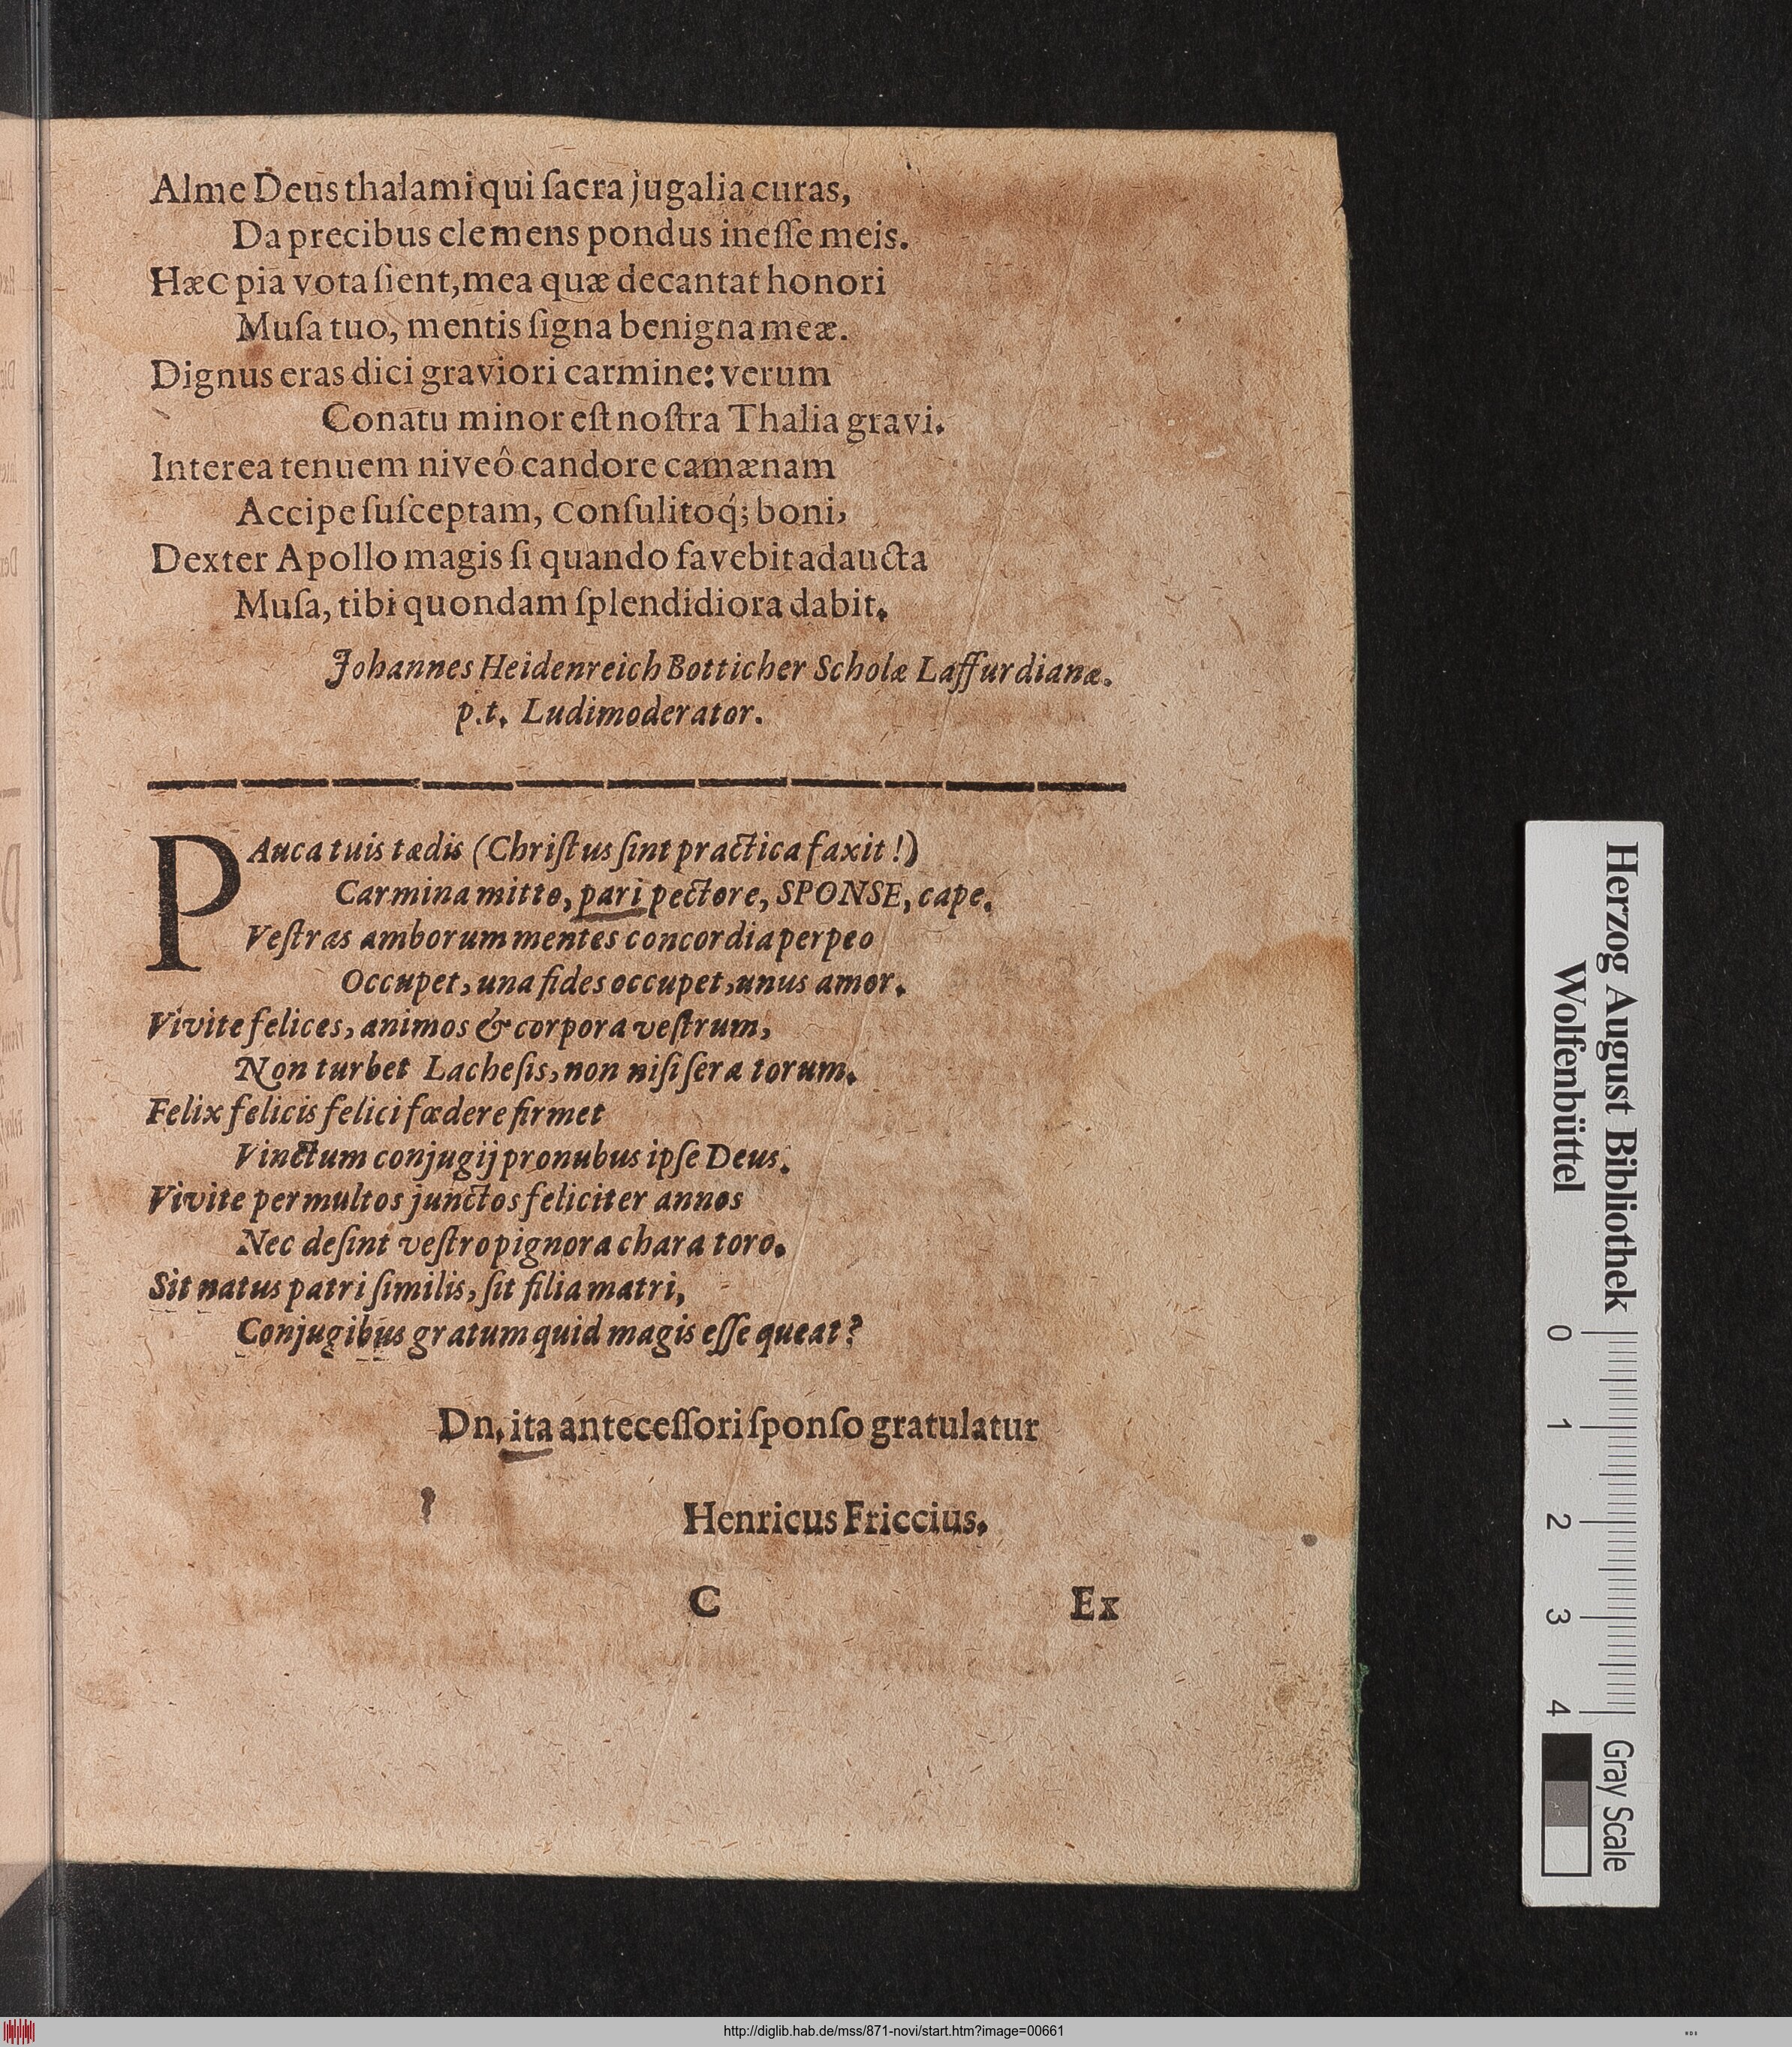 Alme Deus thalami qui ſacra jugalia curas,
Da precibus clemens pondus ineſſe meis.
Hæc pia vota ſient, mea quæ decantat honori
Muſa tuo, mentis ſigna benigna meæ.
Dignus eras dici graviori carmine: verum
Conatu minor eſt noſtra Thalia gravi.
Interea tenuem niveô candore camænam
Accipe ſuſceptam, conſulitoq́; boni,
Dexter Apollo magis ſi quando favebit adaucta
Muſa, tibi quondam ſplendidiora dabit.
Johannes Heidenreich Botticher Scholæ Laffurdianæ.
p.t. Ludimoderator.
PAuca tuis tædis (Chriſtus ſint practica faxit!)
Carmina mitto, pari pectore, SPONSE, cape.
Veſtras amborum mentes concordia perpeo
Occupet, una fides occupet, unus amor.
Vivite felices, animos & corpora veſtrum,
Non turbet Lacheſis, non niſi ſera torum.
Felix felicis felici fœdere firmet
Vinctum conjugij pronubus ipſe Deus.
Vivite per multos junctos feliciter annos
Nec deſint veſtro pignora chara toro.
Sit natus patri ſimilis, ſit filia matri,
Conjugibus gratum quid magis eſſe queat?
Dn. ita anteceſſori ſponſo gratulatur
Henricus Friccius.
C Ex
Herzog August Bibliothek
Wolfenbüttel
0 1 2 3 4
Gray Scale
http://diglib.hab.de/mss/871-novi/start.htm?image=00661